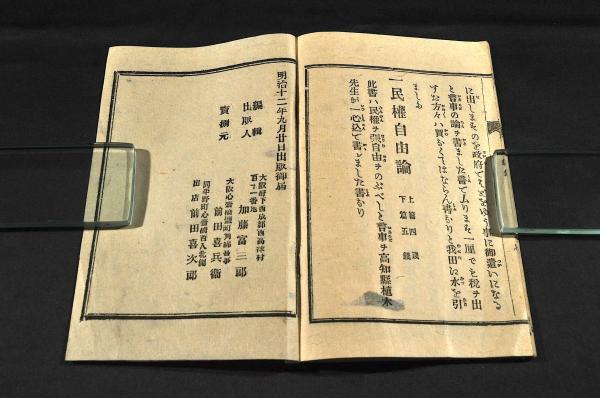 に出しまその を政府で ゆう 事に御遣いになる
と云事の論ヲ書ました書で ムります一厘でも税ヲ出
す方々ハ買なくてはならん書なりと我田に水を引
ましよ
一民權自由論
上篇四
下篇五錢
此書ハ民權ヲ 自由ヲのぶべしと云事ヲ高知縣植木
先生が一心込て書レました書なり
明治十二年九月廿日出版御届
編輯
出版人
大阪府下西成郡西高津村
百 十一番地
加藤富三郎
賣捌元
大阪心斎橋 町角
前田喜兵衛
同 野町心斎橋
出店 前田喜次郎